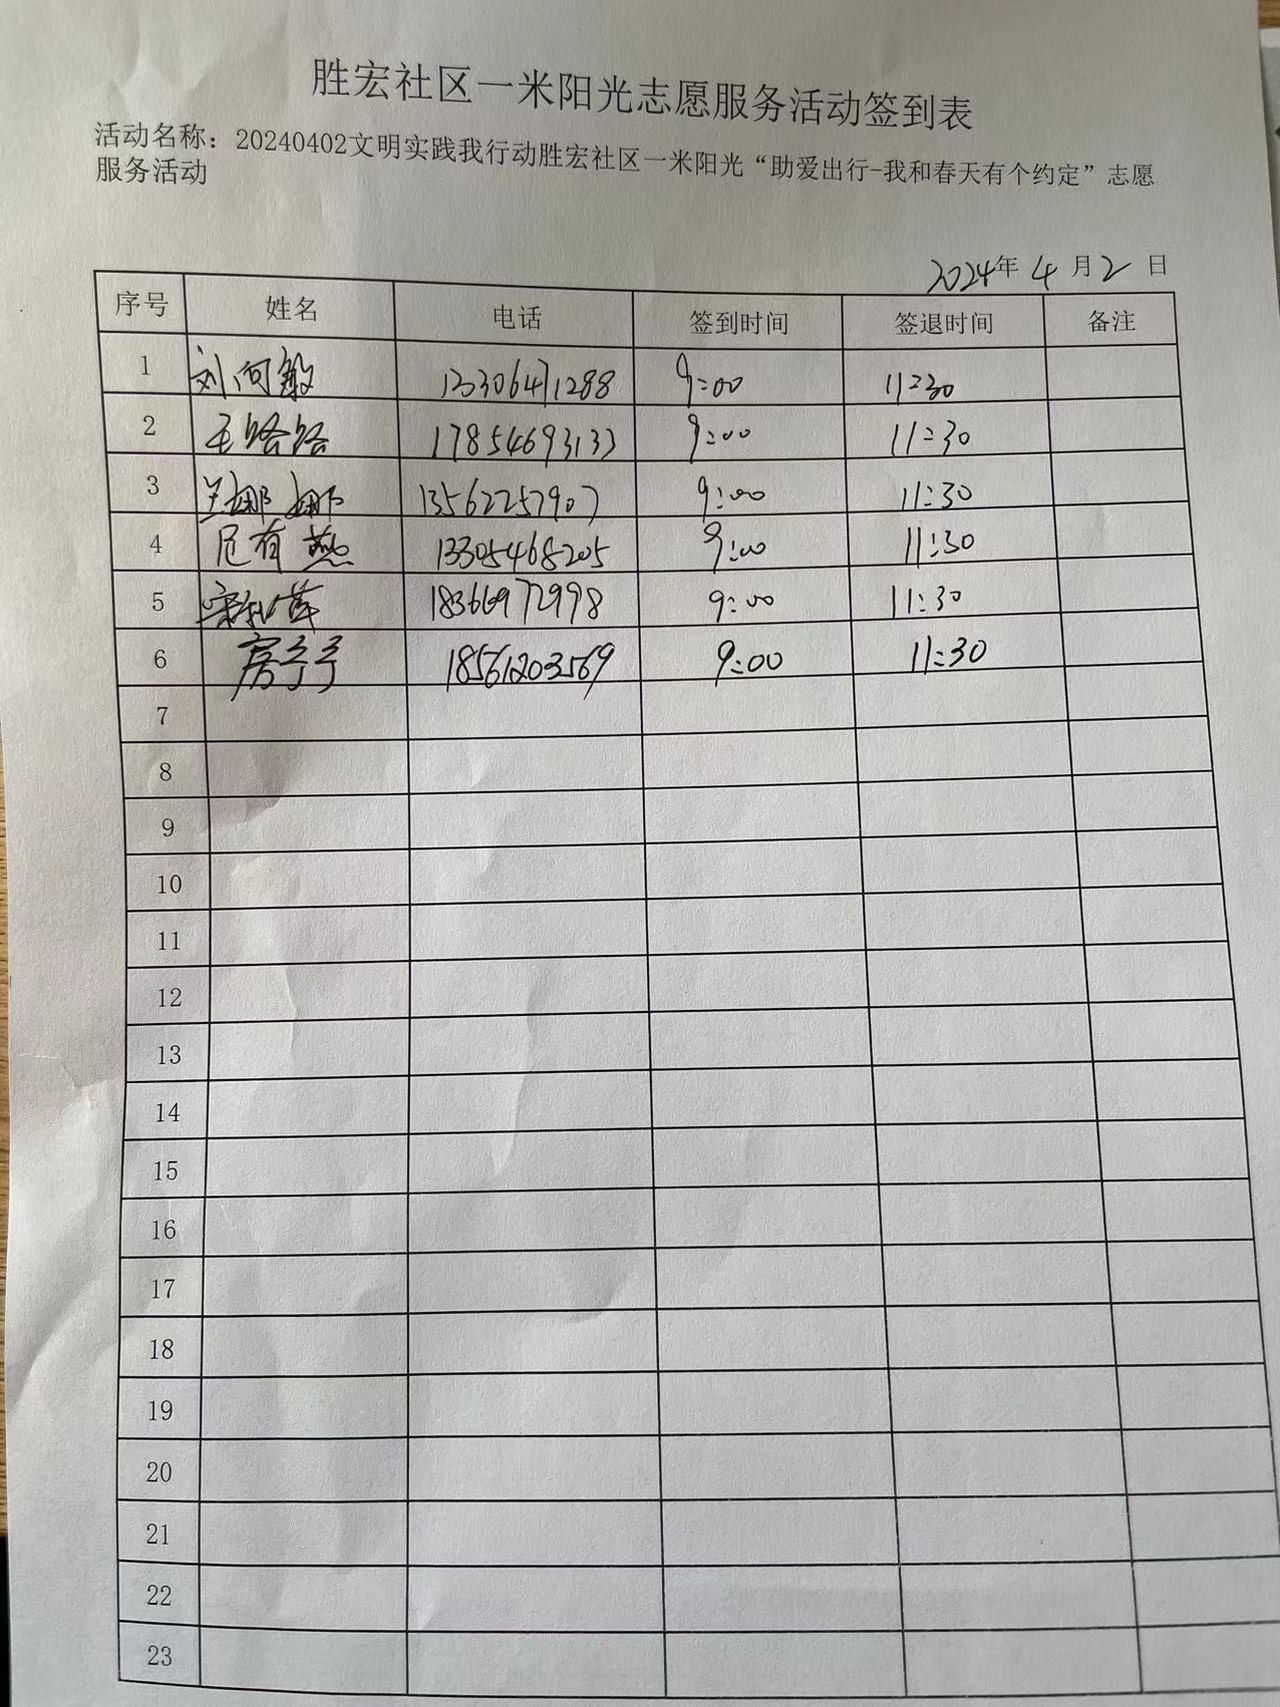 胜宏社区一米阳光志愿服务活动签到表
活动名称：20240402文明实践我行动胜宏社区一米阳光“助爱出行-我和春天有个约定”志愿
服务活动
2024年 4 月 2 日
序号 姓名 电话 签到时间 签退时间 备注
1 刘向敏 13306471288 9:00 11:30
2 王路路 17854693133 9:00 11:30
3 兰娜娜 13562257907 9:00 11:30
4 尼有燕 13305468205 9:00 11:30
5 18366972998 9:00 11:30
6 房兰兰 18561203569 9:00 11:30
7
8
9
10
11
12
13
14
15
16
17
18
19
20
21
22
23